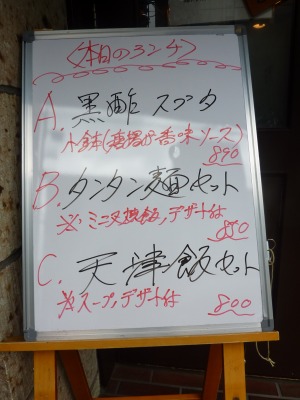 〈本日のランチ〉
A. 黒酢スブタ
小鉢(唐揚の香味ソース)
890
B. タンタン麺セット
※ミニ叉焼飯,デザート付
850
C. 天津飯セット
※スープ,デザート付
800